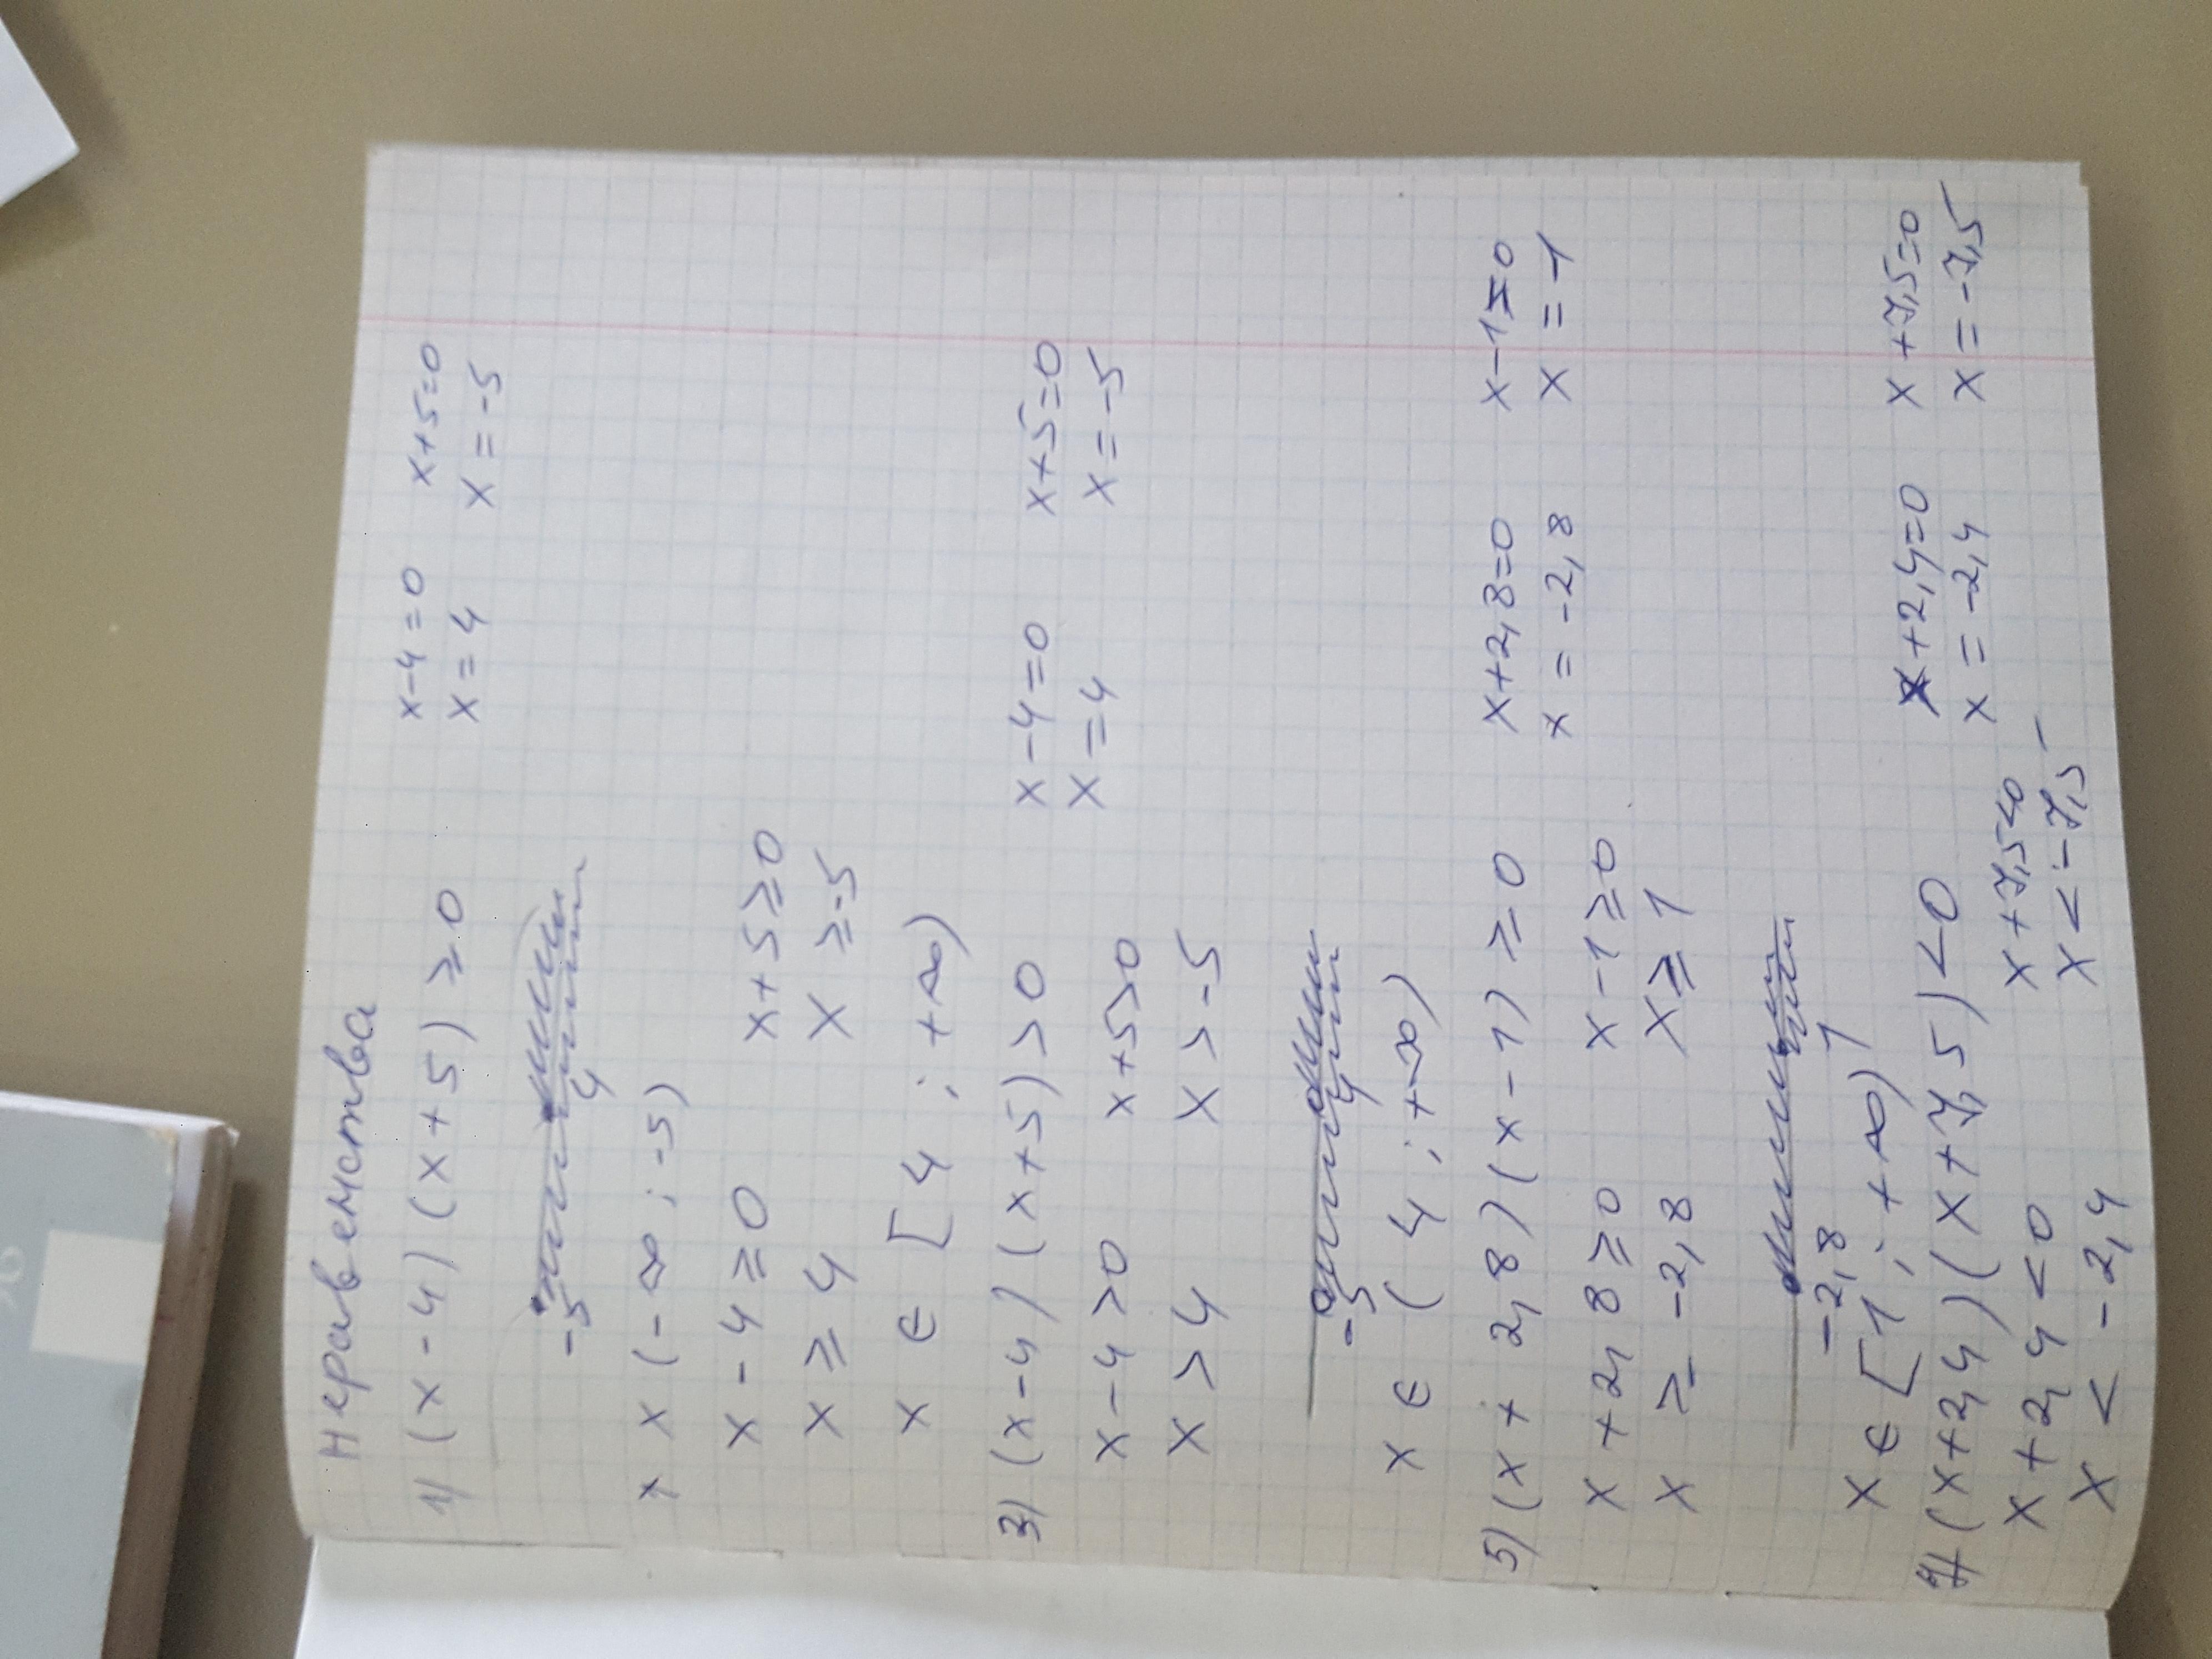 Неравенства
1) (x-4)(x+5) ≥ 0 x-4=0 x+5=0
x=4 x=-5
-5 4
x x (-∞ ; -5)
x-4 ≥ 0 x+5 ≥ 0
x ≥ 4 x ≥ -5
x ∈ [4 ; +∞)
3) (x-4)(x+5) > 0 x-4=0 x+5=0
x-4 > 0 x+5>0 x=4 x=-5
x > 4 x > -5
-5 4
x ∈ (4 ; +∞)
5) (x + 2,8)(x-1) ≥ 0 x+2,8=0 x-1=0
x + 2,8 ≥ 0 x-1 ≥ 0 x = -2,8 x = -1
x ≥ -2,8 x ≥ 1
-2,8 1
x ∈ [1 ; +∞)
7) (x+2,4)(x+7,5) < 0 x+2,4=0 x+7,5=0
x+2,4 < 0 x+7,5<0 x = -2,4 x = -7,5
x < -2,4 x < -7,5